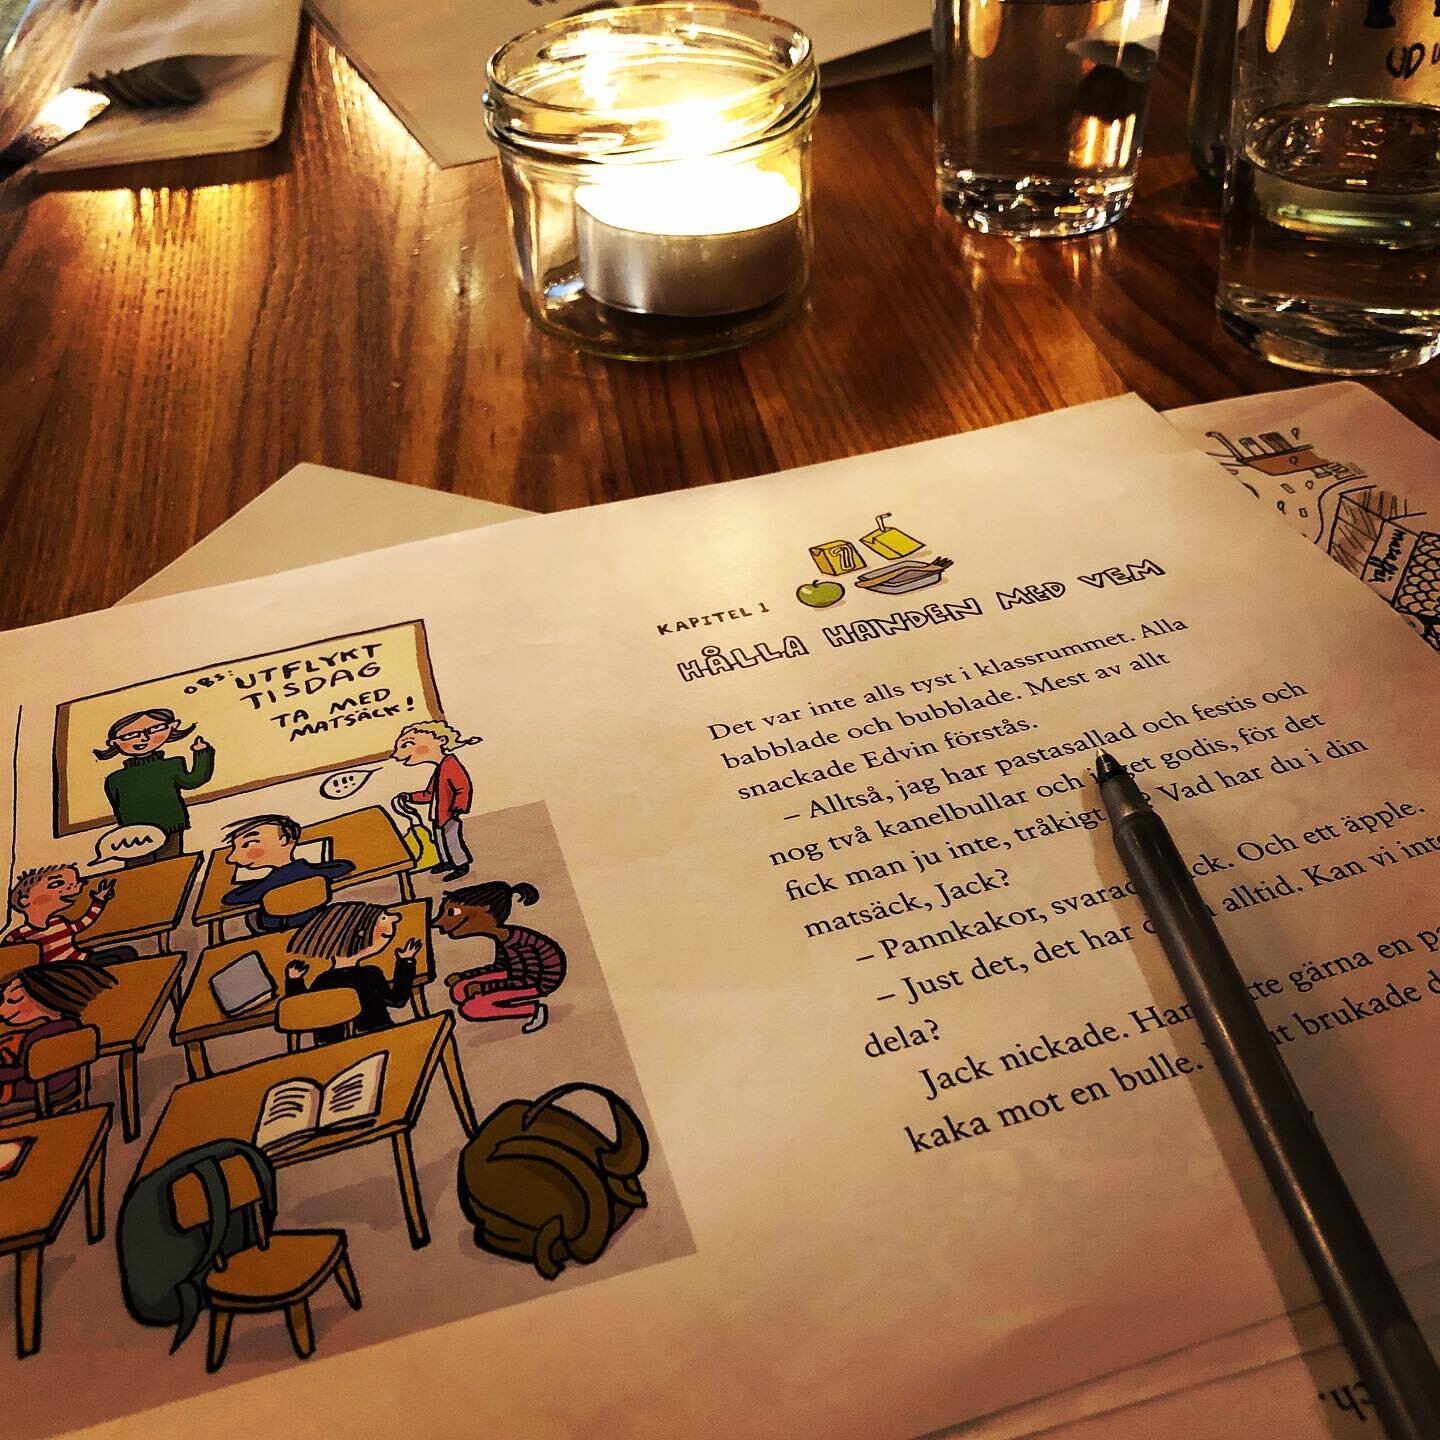 OBS: UTFLYKT
TISDAG
TA MED
MATSÄCK!
!!!
KAPITEL 1
HÅLLA HANDEN MED VEM
Det var inte alls tyst i klassrummet. Alla
babblade och bubblade. Mest av allt
snackade Edvin förstås.
– Alltså, jag har pastasallad och festis och
nog två kanelbullar och get godis, för det
fick man ju inte, tråkigt ? Vad har du i din
matsäck, Jack?
– Pannkakor, svarade ck. Och ett äpple.
– Just det, det har d alltid. Kan vi inte
dela?
Jack nickade. Han tte gärna en pa
kaka mot en bulle. ut brukade d
mataffär
ch.